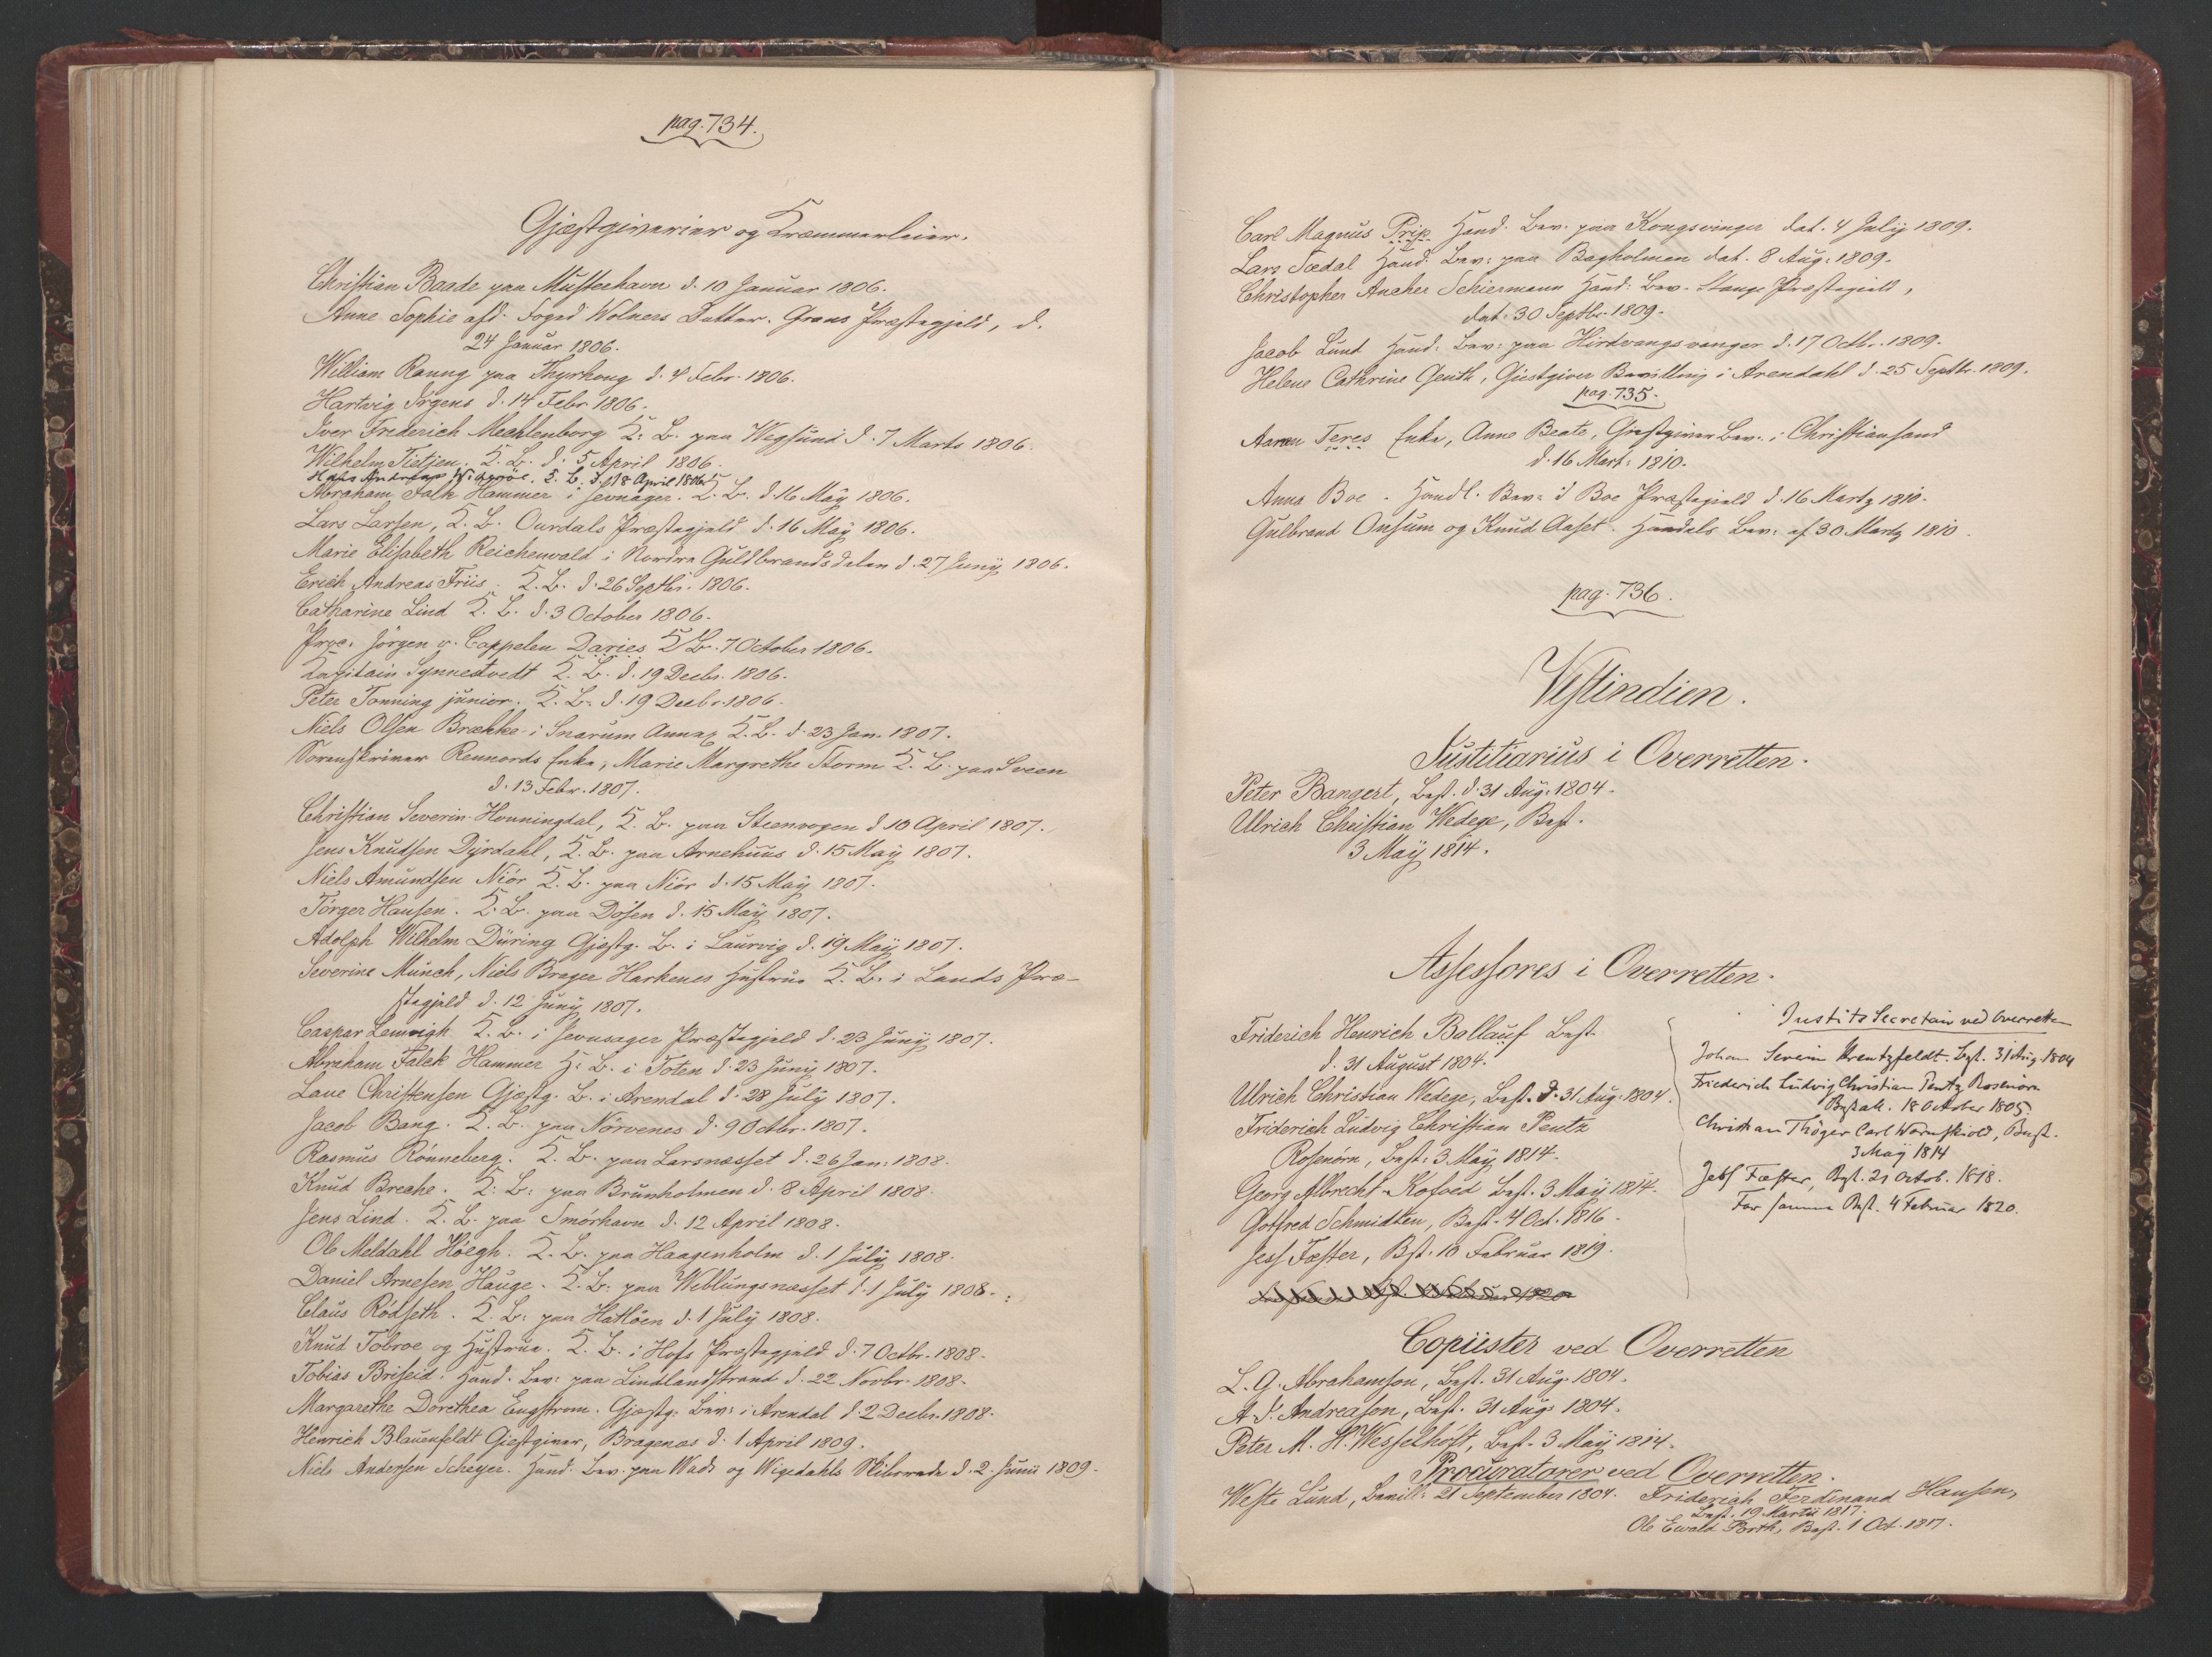 pag. 734.
Gjæstgiverier og Kræmmerleier.
Christian Baade paa Musteehavn d. 10 Januar 1806.
Anne Sophie afd. Foged Wolners Datter. Grans Præstegjeld, d.
24 Januar 1806.
William Raung paa Thyrhoug d. 4 Febr. 1806.
Hartvig Irgens d. 14 Febr 1806.
Iver Frederich Mecklenborg K. B. paa Wegsund d. 7 Marts 1806.
Wilhelm Tietjen. K. B. d. 5 April 1806.
Hans Andreas K. B. d. 18 April 1806.
Abraham Falk Hammer i Jevnager. K. B. d. 16 Maÿ 1806.
Lars Larsen, K. B. Ourdals Præstegjeld d. 16 Maÿ 1806.
Marie Elisabeth Reichenwald i Nordre Guldbrandsdalen d. 27 Junÿ 1806.
Erich Andreas Friis. K. B. d. 26 Septbr. 1806.
Catharine Lind K. B. d. 3 October 1806.
Proc. Jörgen v. Cappelen Daries K B. 7 October 1806.
Kapitain Synnestvedt K. B. d. 19 Decbr. 1806.
Peter Tonning junior. K. B. d. 19 Decbr. 1806.
Niels Olsen Brække i Snarum Annax K. B. d. 23 Jan. 1807.
Sorenskriver Rennords Enke, Marie Margrethe Storm K. B. paa Sveen
d. 13 Febr. 1807.
Christian Severin Honningdal, K. B. paa Steenvogen d 10 April 1807.
Jens Knudsen Dÿrdahl, K. B. paa Arnehuus d. 15 Maÿ 1807.
Niels Amundsen Niör K. B. paa Niör d. 15 Maÿ 1807.
Törger Hansen. K. B. paa Dösen d. 15 Maÿ 1807.
Adolph Wilhelm Düring Gjæstg. B. i Laurvig d. 19 Maÿ 1807.
Severine Munch, Niels Brager Harkenes Hustrue K. B. i Lands Præ-
stegjeld d. 12 Junÿ 1807.
Caspar Lemvigh K. B. i Jevnager Præstegjeld d. 23 Junÿ 1807.
Abraham Falck Hammer H. B. i Toten d. 23 Junÿ 1807.
Laue Christensen Gjæstg. B. i Arendal d. 28 Julÿ 1807.
Jacob Bang. K. B. paa Nörvenes d. 9 Octbr. 1807.
Rasmus Rönneberg. K. B. paa Larsnæsset d. 26 Jan: 1808.
Knud Breche. K. B. paa Brunholmen d. 8 April 1808.
Jens Lind. K. B. paa Smörhavn d. 12 April 1808.
Ole Meldahl Höegh. K. B. paa Haagenholm d. 1 Julÿ 1808.
Daniel Arnesen Hauge. K. B. paa Weblungsnæsset d. 1 Julÿ 1808.
Claus Rödseth. K. B. paa Hatlöen d. 1 Julÿ 1808.
Knud Tobroe og Hustrue. K. B. i Hofs Præstegjeld d. 7 Octbr. 1808.
Tobias Briseid. Hand. Bev: paa Lindlandstrand d. 22 Novbr. 1808.
Margarethe Dorethea Engstrom. Gjæstg: Bev: i Arendal d. 2 Decbr. 1808.
Henrich Blauenfeldt Giestgiver, Bragenæs d. 1 April 1809.
Niels Andersen Scheyer. Hand. Bev. paa Wads og Wigedahls Skibrrede d. 2. Junii 1809.
Carl Magnus Prip Hand. Bev. paa Kongsvinger dat. 4 Julÿ 1809.
Lars Sædal Hand. Bev: paa Bagholmen dat. 8 Aug: 1809.
Christopher Ancher Schiermann Hand: Bev. Stange Præstegield,
dat. 30 Septbr. 1809.
Jacob Lund Hand. Bev: paa Hirdvangsvanger d. 17 Octbr. 1809.
Helene Cathrine Genth, Giestgiver Bevilling i Arendahl d. 25 Septbr. 1809.
pag. 735.
Aaron Teres Enke, Anne Beate, Giestgiver Bev. i Christiansand
d. 16 Mart: 1810.
Anna Boe. Handl. Bev: i Boe Præstegield d. 16 Martz 1810.
Gulbrand Onsum og Knud Aaset. Handels Bev: af 30 Martz 1810.
pag. 736.
Vestindien.
Justitiarius i Overretten.
Peter Bangert, Best. d. 31 Aug. 1804.
Ulrich Christian Wedege, Best.
3 Maÿ 1814.
Assessores i Overretten.
Friderich Henrich Ballauf Best.
d. 31 August 1804.
Ulrich Christian Wedege, Best. d. 31 Aug. 1804.
Friderich Ludvig Christian Pentz
Rosenörn, Best: 3 Maÿ 1814.
Georg Albrecht Kofoed Best. 3 Maÿ 1814.
Gotfred Schmidten, Best. 4 Oct. 1816.
Jess Fæster, Bst. 10 Februar 1819.
Justits Secretair ved Overretten
Johan Severin Kreutzfeldt. Best. 31 Aug. 1804
Friederich Ludvig Christian Pentz Rosenörn
Bestalt. 18 October 1805.
Christian Thöger Carl Wormskiold, Best.
3 Maÿ 1814
Jess Fæster, Bst. 21 Octob. 1818.
Best. 4 Februar 1820.
Copiister ved Overretten
L. G. Abrahamson, Best. 31 Aug. 1804.
A. S. Andreason, Best. 31 Aug. 1804.
Peter M. H. Wesselhöft, Best. 3 Maÿ 1814.
Procuratorer ved Overretten.
Weste Lund, Bevill: 21 September 1804. Friderich Ferdinand Hansen,
Best. 19 Martii 1817.
Ole Ewald Forth, Best. 1 Oct. 1817.